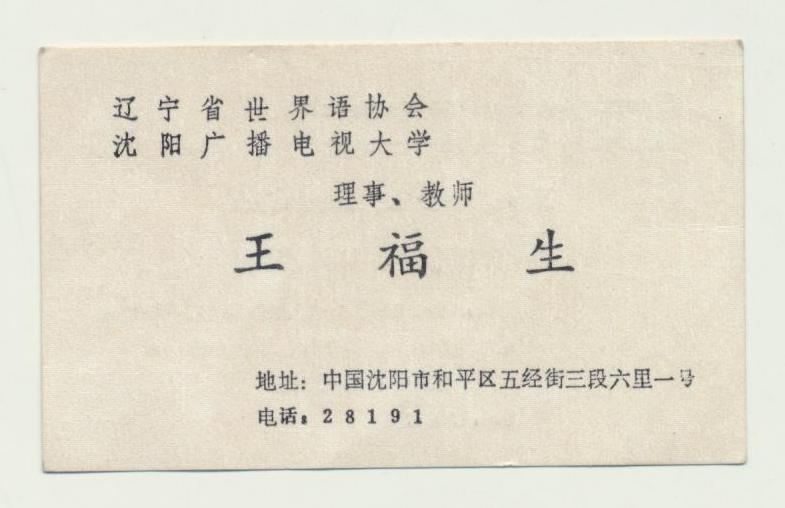 辽宁省世界语协会
沈阳广播电视大学
理事、教师
王福生
地址：中国沈阳市和平区五经街三段六里一号
电话：28191